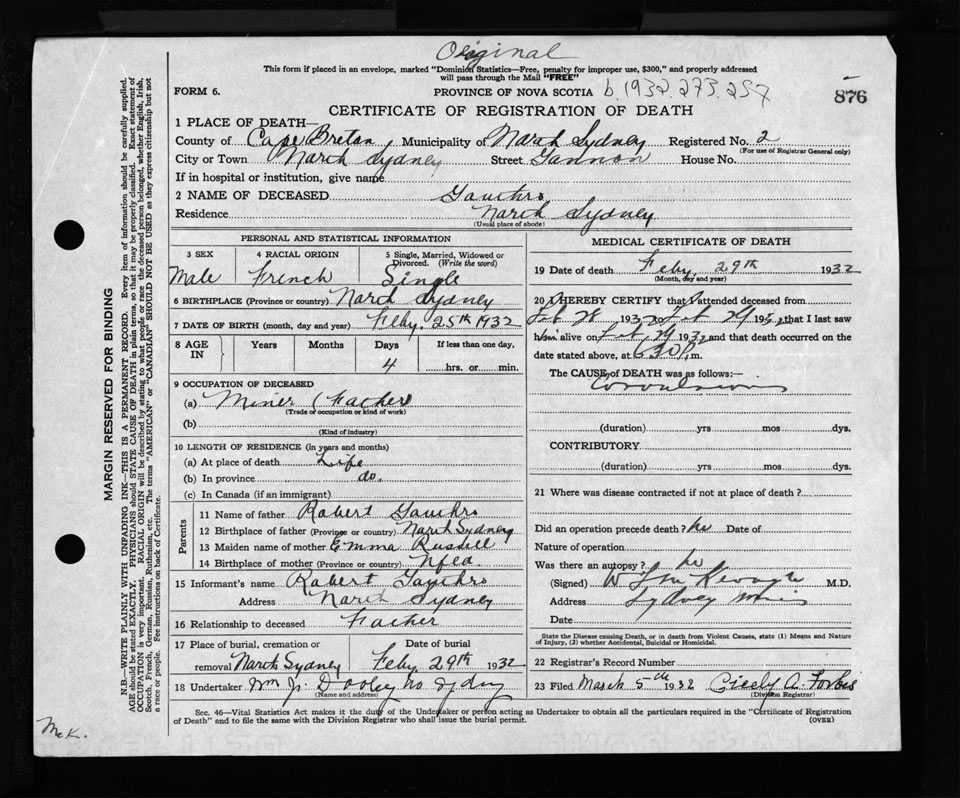 Original
This form if placed in an envelope, marked "Dominion Statistics—Free, penalty for improper use, $300," and properly addressed
will pass through the Mail "FREE"
FORM 6.
PROVINCE OF NOVA SCOTIA
b.1932.273.257
876
CERTIFICATE OF REGISTRATION OF DEATH
1 PLACE OF DEATH—
County of Cape Breton Municipality of North Sydney Registered No. 2
(For use of Registrar General only)
City or Town North Sydney Street Gannon House No.
If in hospital or institution, give name
2 NAME OF DECEASED Gauthro
Residence North Sydney
(Usual place of abode)
PERSONAL AND STATISTICAL INFORMATION
3 SEX 4 RACIAL ORIGIN 5 Single, Married, Widowed or Divorced. (Write the word)
Male French Single
6 BIRTHPLACE (Province or country) North Sydney
7 DATE OF BIRTH (month, day and year) Feby. 25th 1932
8 AGE IN Years Months Days If less than one day,
4 hrs. or min.
9 OCCUPATION OF DECEASED
(a) Miner (Father)
(Trade or occupation or kind of work)
(b)
(Kind of industry)
10 LENGTH OF RESIDENCE (in years and months)
(a) At place of death Life
(b) In province do.
(c) In Canada (if an immigrant)
Parents
11 Name of father Robert Gauthro
12 Birthplace of father (Province or country) North Sydney
13 Maiden name of mother Emma Russell
14 Birthplace of mother (Province or country) Nfld.
15 Informant's name Robert Gauthro
Address North Sydney
16 Relationship to deceased Father
17 Place of burial, cremation or removal North Sydney Date of burial Feby. 29th 1932
18 Undertaker Wm J. Dooley No Sydney
(Name and address)
MEDICAL CERTIFICATE OF DEATH
19 Date of death Feby. 29th 1932
(Month, day and year)
20 I HEREBY CERTIFY that I attended deceased from
Feb 28 1932 to Feb 29 1932 that I last saw
him alive on Feb 29 1932 and that death occurred on the
date stated above, at 6 30 P. m.
The CAUSE of DEATH was as follows:—
Convulsions
(duration) yrs mos dys.
CONTRIBUTORY
(duration) yrs mos dys.
21 Where was disease contracted if not at place of death?
Did an operation precede death? no Date of
Nature of operation
Was there an autopsy? no
(Signed) M.D.
Address Sydney Mines
Date
State the Disease causing Death, or in death from Violent Causes, state (1) Means and Nature
of Injury, (2) whether Accidental, Suicidal or Homicidal.
22 Registrar's Record Number
23 Filed March 5th 1932 Cicely A. Forbes
(Division Registrar)
Sec. 46—Vital Statistics Act makes it the duty of the Undertaker or person acting as Undertaker to obtain all the particulars required in the "Certificate of Registration
of Death" and to file the same with the Division Registrar who shall issue the burial permit.
(OVER)
MARGIN RESERVED FOR BINDING
N.B.—WRITE PLAINLY WITH UNFADING INK—THIS IS A PERMANENT RECORD. Every item of information should be carefully supplied.
AGE should be stated EXACTLY. PHYSICIANS should STATE CAUSE OF DEATH in plain terms, so that it may be properly classified. Exact statement of
OCCUPATION is very important. RACIAL ORIGIN will be described by stating to what people or race the deceased person belonged, whether English, Irish,
Scotch, French, German, Russian, Ruthenian, etc. The terms "AMERICAN" or "CANADIAN" SHOULD NOT BE USED as they express citizenship but not
a race or people. See instructions on back of Certificate.
McK.